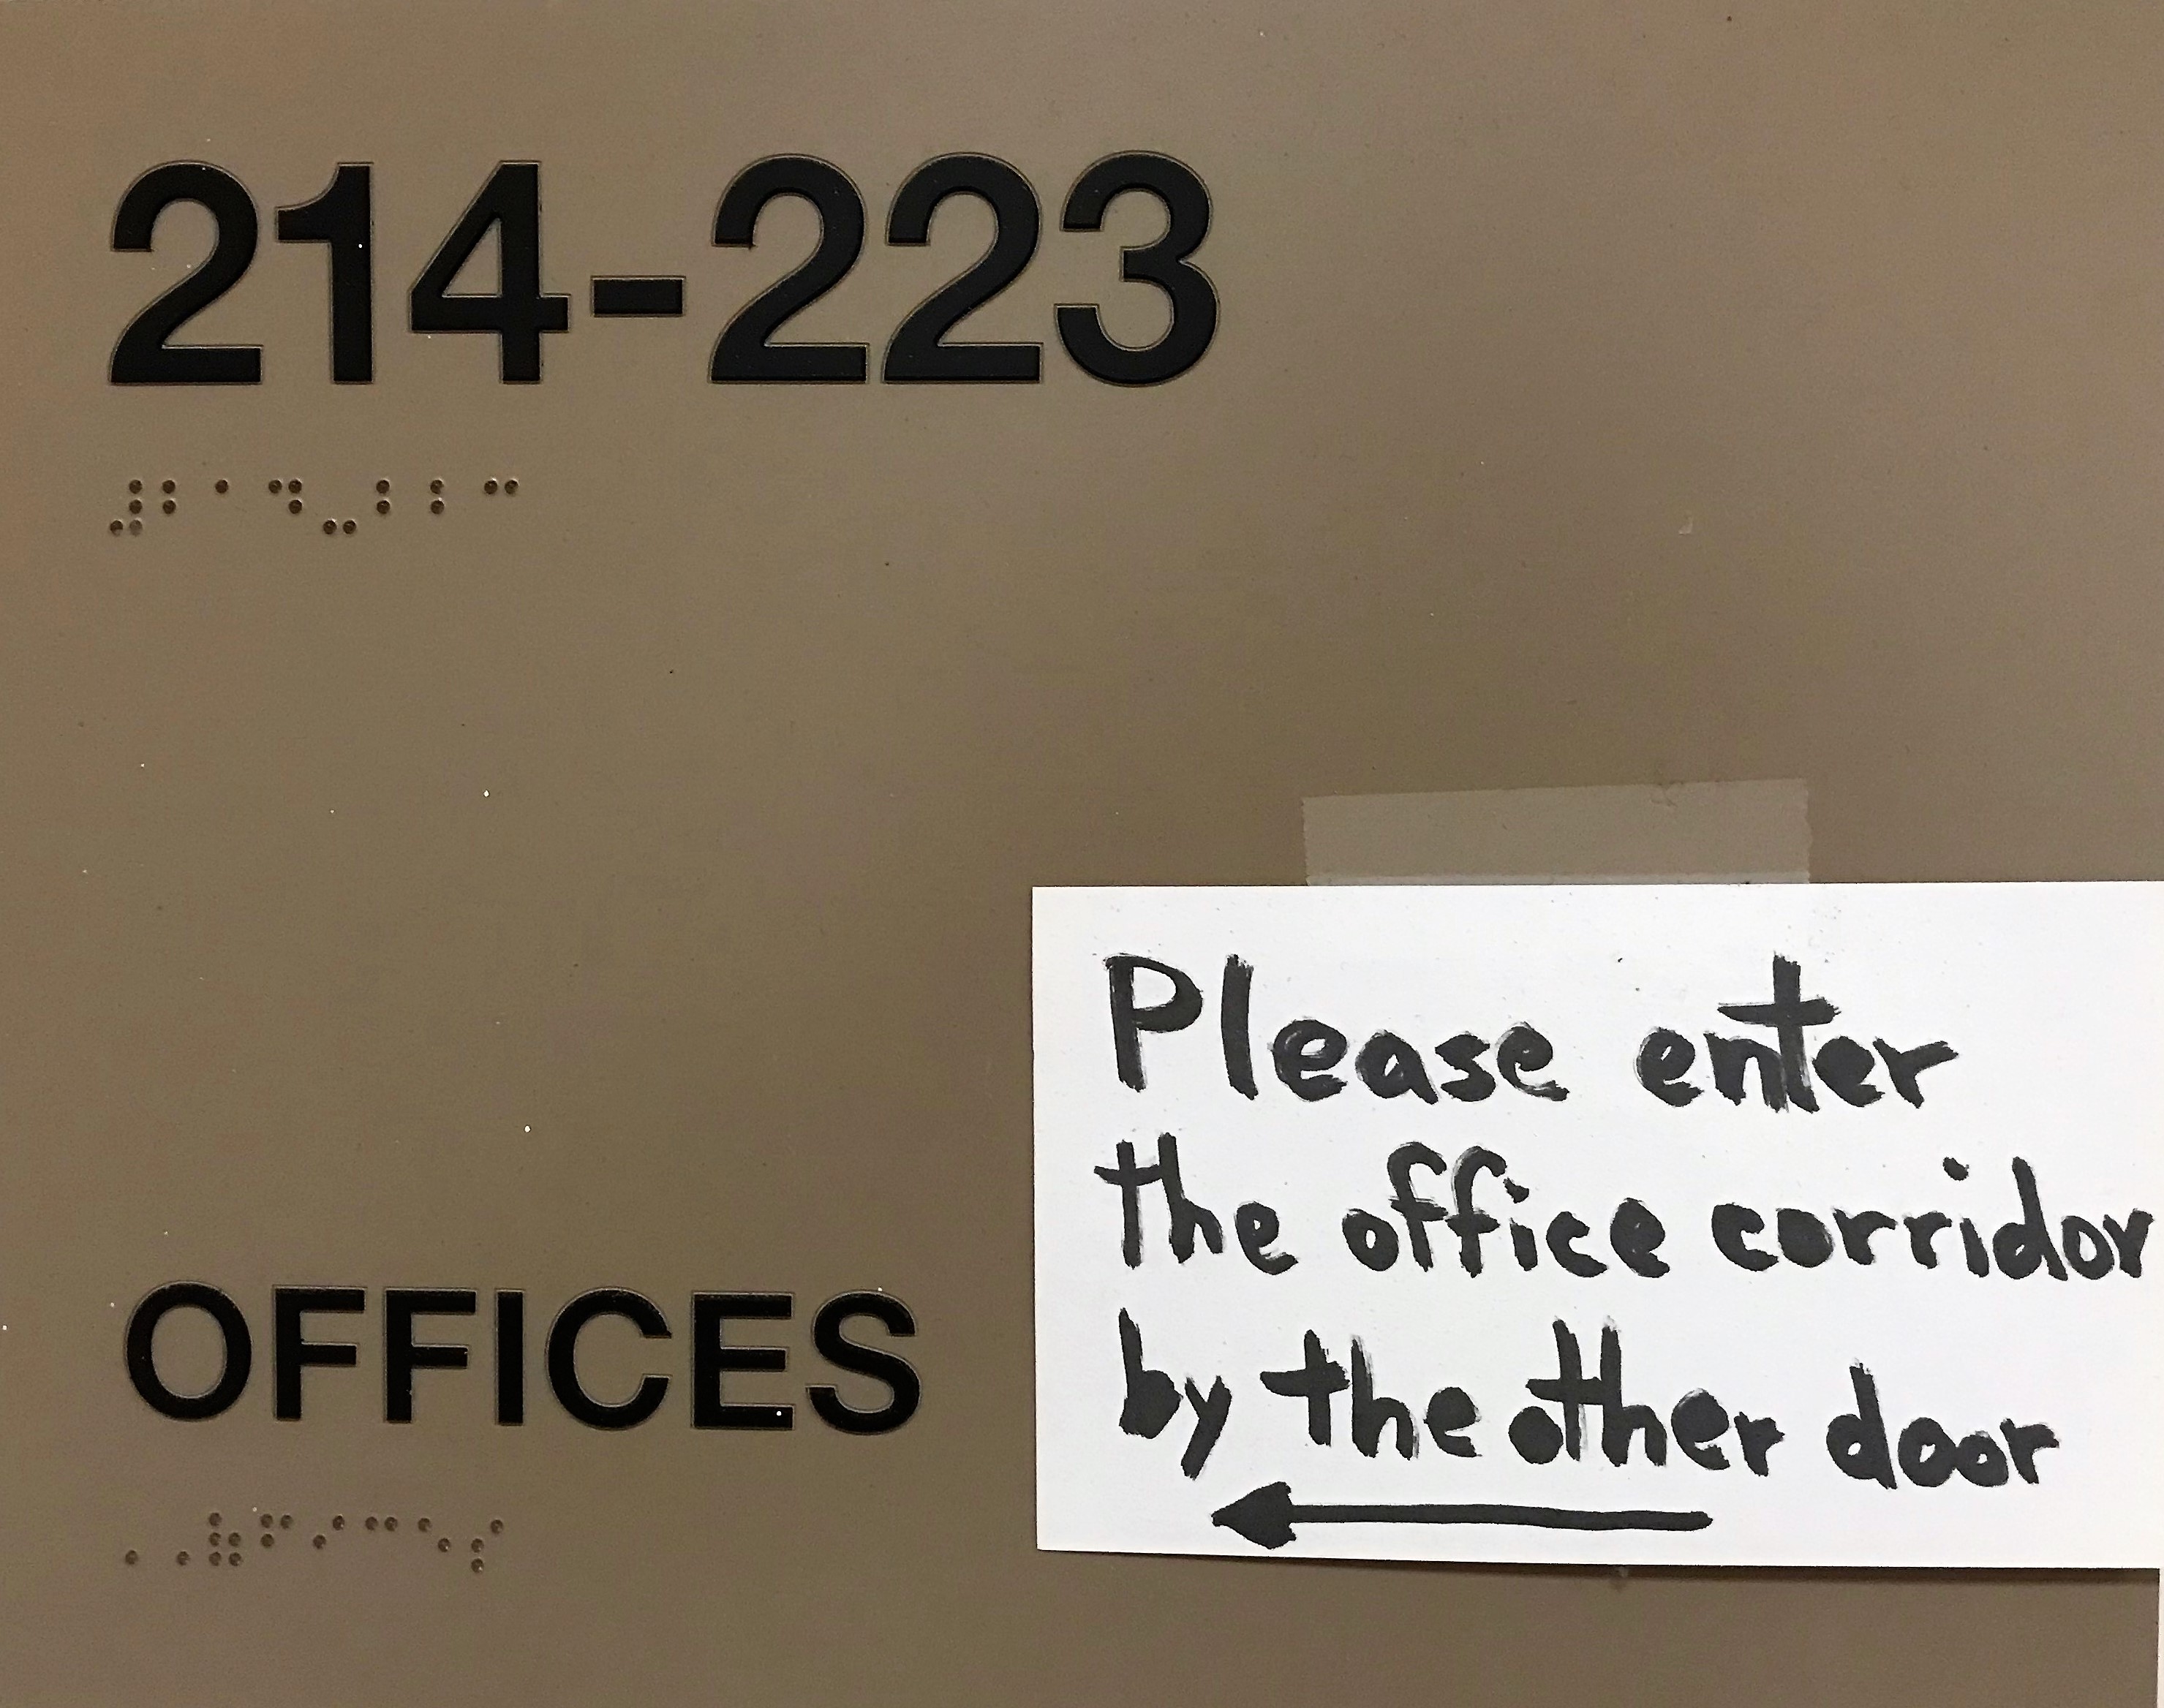 214-223
⠼⠃⠁⠙⠤⠃⠃⠉
OFFICES
⠠⠠⠷⠋⠊⠉⠑⠎
Please enter
the office corridor
by the other door